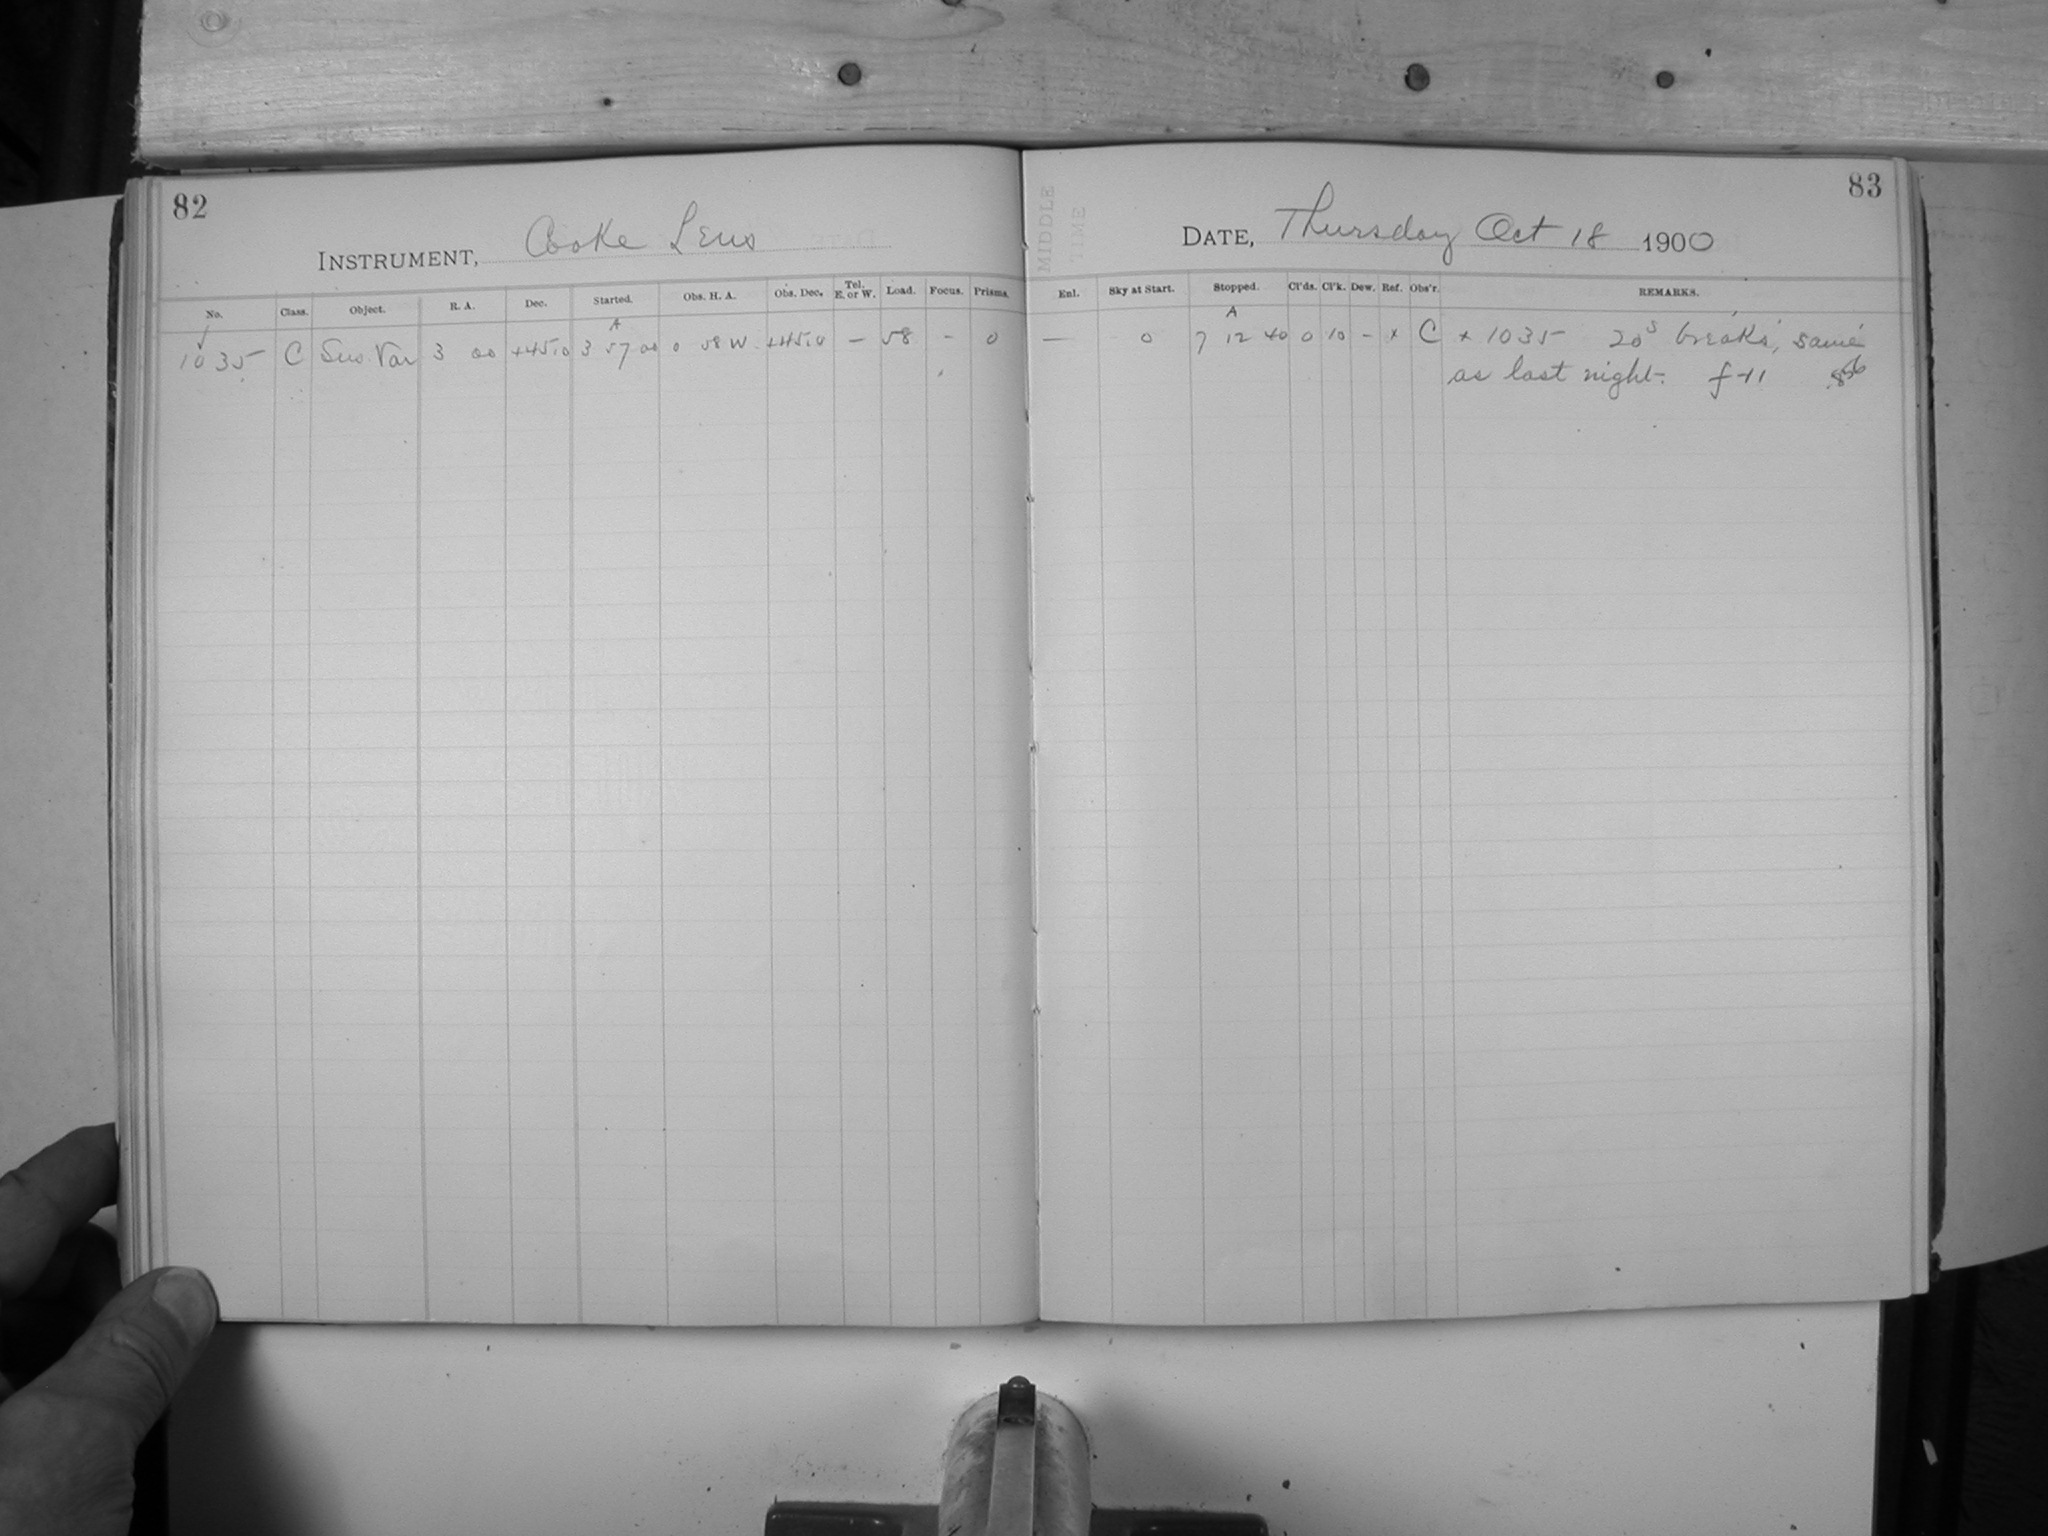 82
INSTRUMENT, Cooke Lens
No. Class. Object. R. A. Dec. Started. Obs. H. A. Obs. Dec. Tel. E. or W. Load. Focus. Prisms.
A
1035 C Sus. Var 3 00 +45.0 3 57 00 0 58 W +45.0 — 58 - 0
83
MIDDLE
DATE, Thursday Oct 18 1900
Enl. Sky at Start. Stopped. Cl'ds. Cl'k. Dew. Ref. Obs'r. REMARKS.
A
— 0 7 12 40 0 10 - x C x 1035 20s breaks, same
as last night. f-11 856